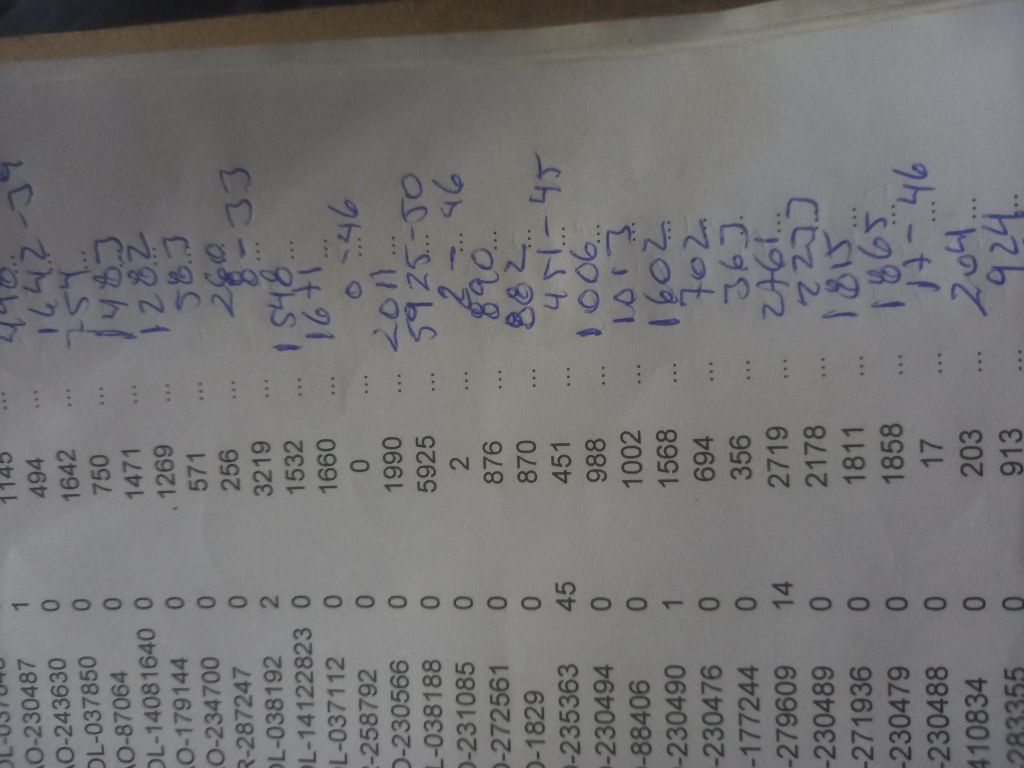 AO-230487 1 1145 ...
AO-243630 0 494 ... 498
OL-037850 0 1642 ... 1642-39
AO-87064 0 750 ... 754
OL-14081640 0 1471 ... 1483
AO-179144 0 1269 ... 1282
AO-234700 0 571 ... 583
R-287247 0 256 ... 260
OL-038192 2 3219 ... 8-33
OL-14122823 0 1532 ... 1548
OL-037112 0 1660 ... 1671
-258792 0 0 ... 0-46
O-230566 0 1990 ... 2011
L-038188 0 5925 ... 5925-50
O-231085 0 2 ... 2-46
O-272561 0 876 ... 890
O-1829 0 870 ... 882
-235363 45 451 ... 451-45
-230494 0 988 ... 1006
-88406 0 1002 ... 1013
-230490 1 1568 ... 1602
-230476 0 694 ... 702
-177244 0 356 ... 363
-279609 14 2719 ... 2761
-230489 0 2178 ... 2223
-271936 0 1811 ... 1815
-230479 0 1858 ... 1865
-230488 0 17 ... 17-46
4110834 0 203 ... 204
-283355 0 913 ... 924